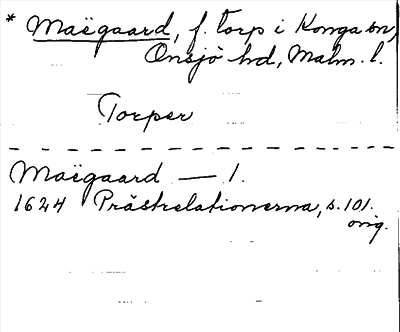 * Maëgaard, f. torp i Konga sn,
Onsjö hd, Malm. l.
Torper
Maëgaard — 1.
1624 Prästrelationerna, s. 101.
orig.